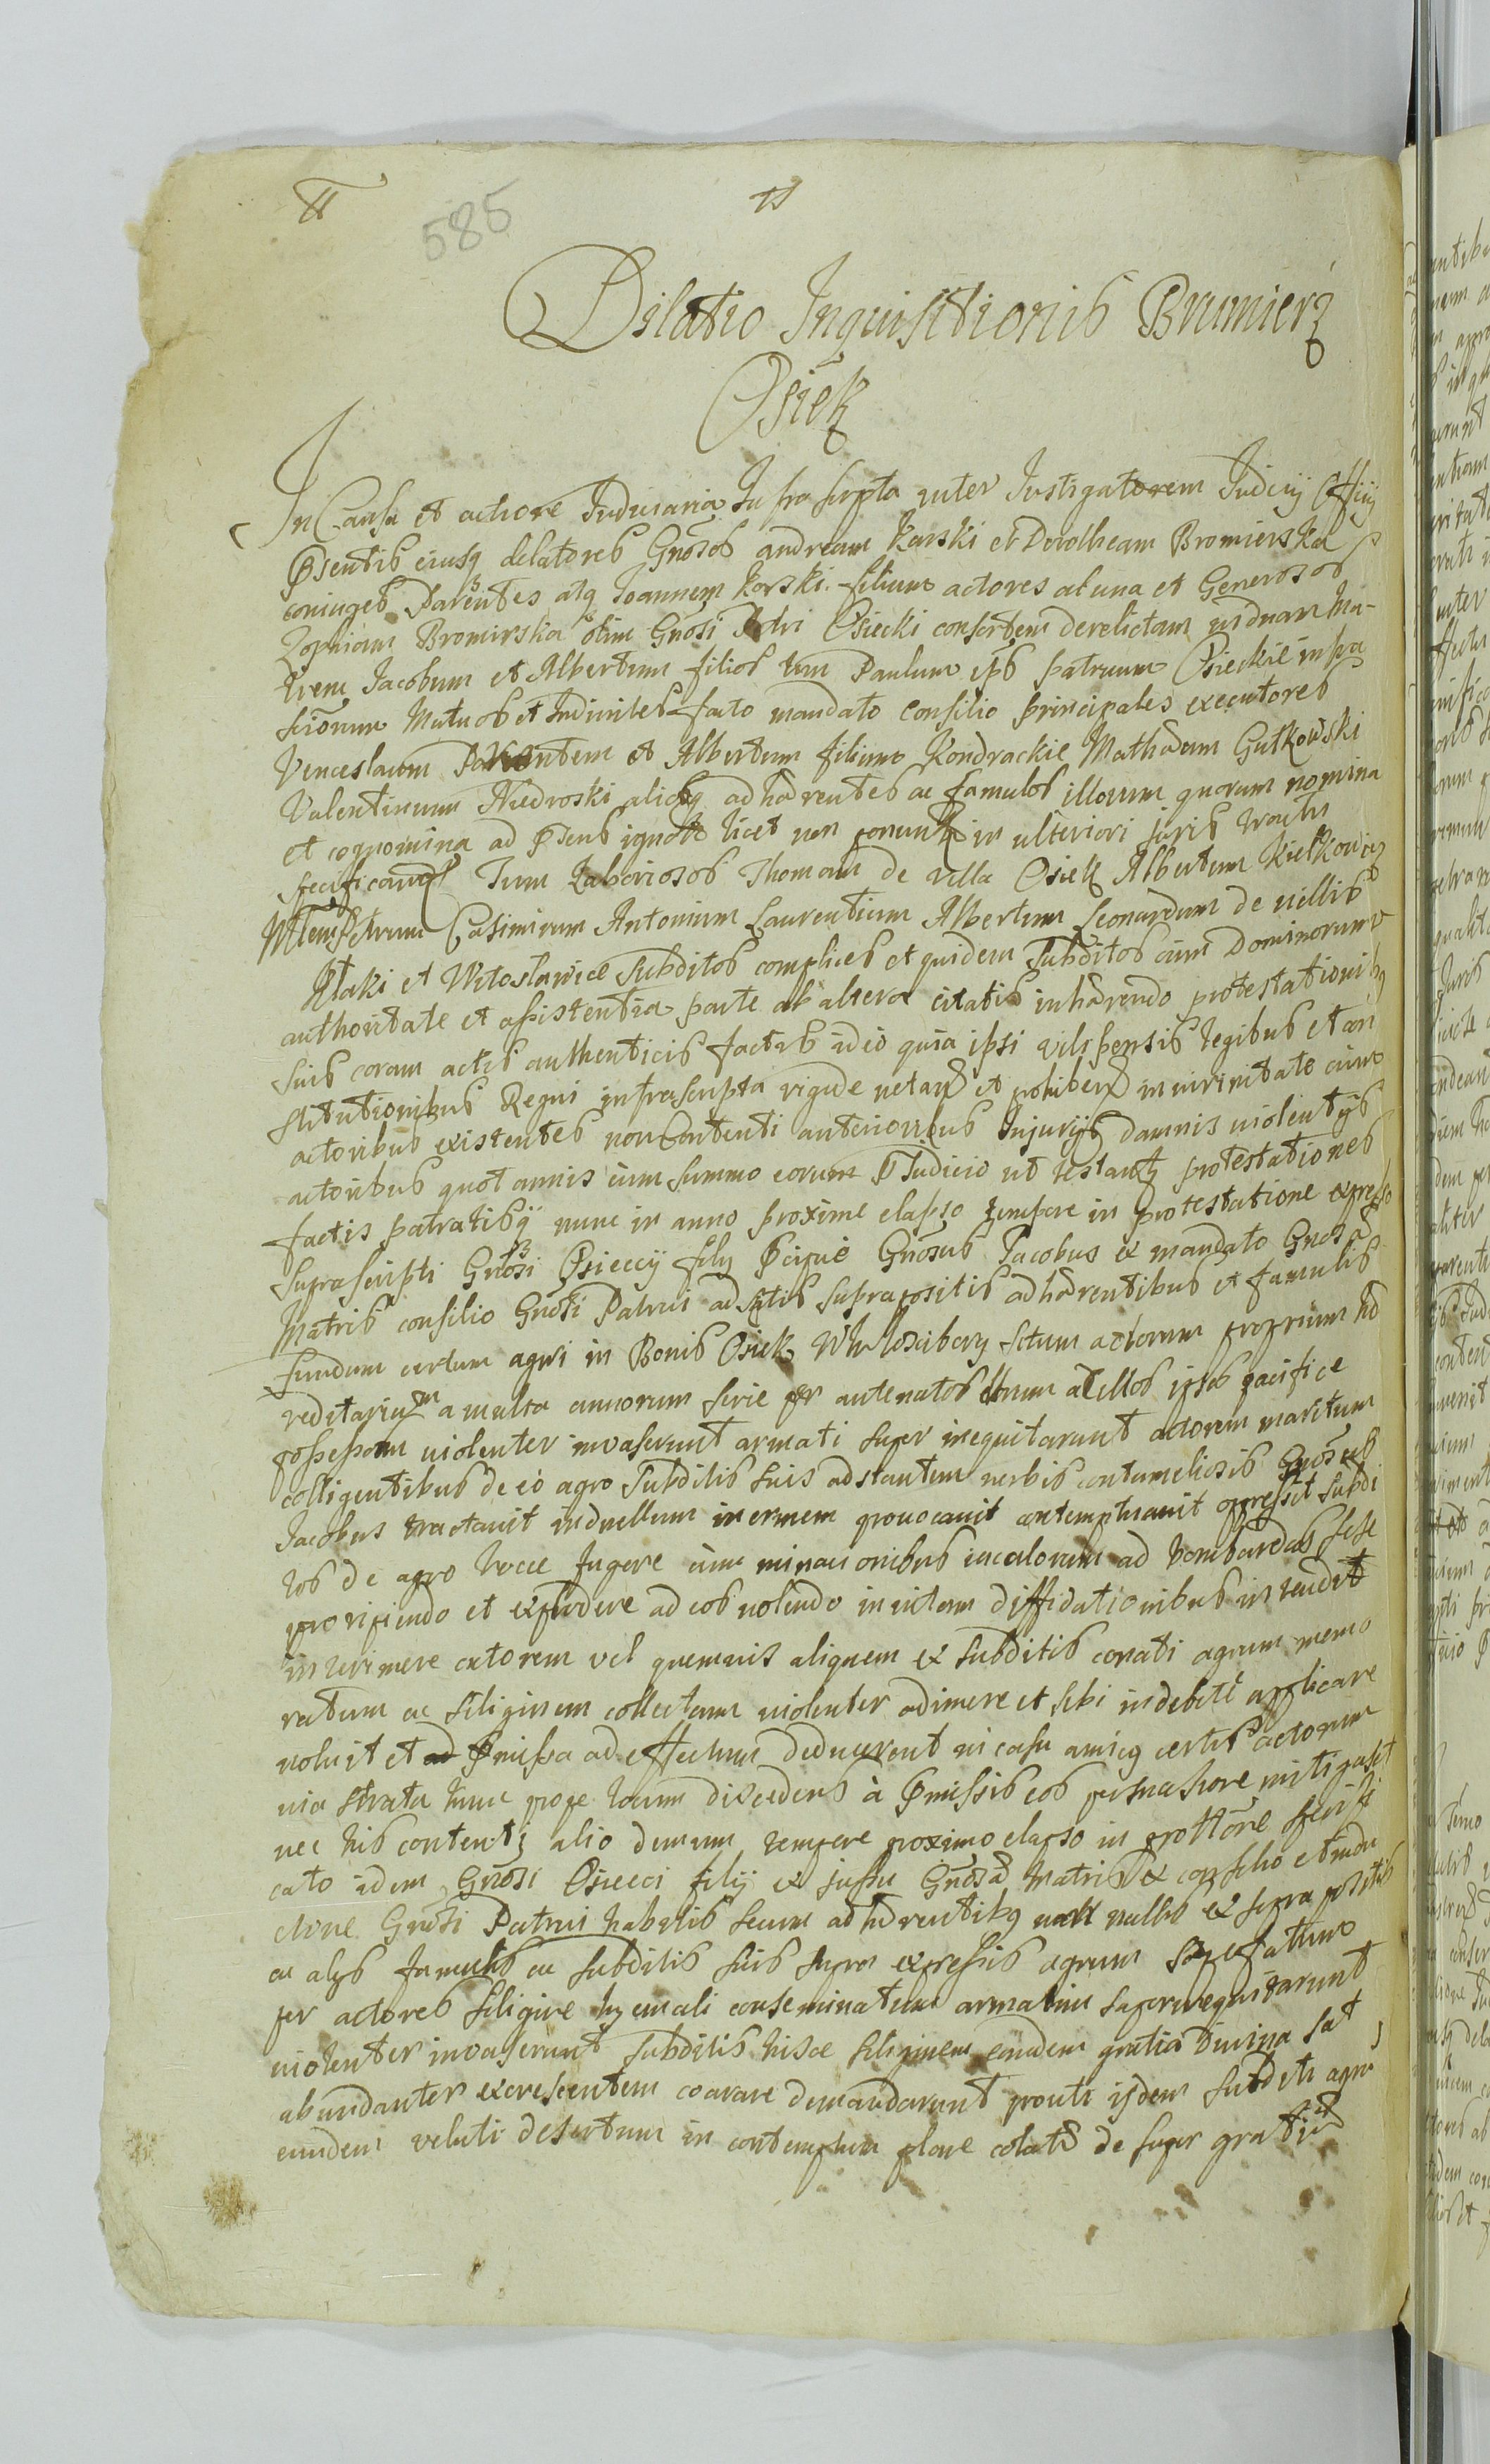 585
Dilatio Inquisitionis Brumierz
Osiek
In Causa et actione Iudiciaria Infrascripta inter Instigatorem Iudicij Officij
Psentis eiusq delatores Gnosos Andream Karski et Dorotheam Bromierska
coniuges Parentes atq Joannem Karski filium actores ab una et Generosos
Zophiam Bromirska olim Gnosi Petri Osiecki consortem derelictam viduam Ma-
trem Jacobum et Albertum filios tum Paulum ips patruum Osieckie infra
scriorum Mutuos et Indivites facto mandato consilio principales executores
Venceslaum Parentem et Albertum filium Kondrackie Mathaeum Gutkowski
Valentinum Niedroski aliosq adhaerentes ac famulos illorum quorum nomina
et cognomina ad Psens ignota licet non in ulteriori juris tractu
specificand Tum Laboriosos Thomam de villa Osiek Albertum Kielkowicz
Petrum Casimirum Antonium Laurentium Albertum Leonardum de villis
Ktaki et Witoslawice subditos complices et quidem subditos cum Dominorum
authoritate et assistentia parte ab altera citatis inhaerendo protestationibq
suis coram actis authenticis factis ideo quia ipsi vilipensis legibus et con
stitutionibus Regni infrascripta rigide vetan et prohiben in vicinitate cum
actoribus existentes non Contenti anterioribus Injurijs damnis violentijs
actoribus quot annis cum summo eorum PJudicio ut testantz protestationes
factis patratisq nunc in anno proxime elapso tempore in protestatione expresso
suprascripti Gnosi Osieccij filij Pcipue Gnosus Jacobus ex mandato Gnosae
Matris consilio Gnosi Patrui adscitis suprapositis adhaerentibus et famulis
fundum certum agri in Bonis Osiek situm actorum proprium hae
reditarium a multa annorum serie per antenatos tum ac illos ipsos pacifice
possessum violenter invaserunt armati super inequitarunt actorem maritum
colligentibus de eo agro subditis suis adstantem verbis contumeliosis Gnosus
Jacobus tractavit in duellum inermem provocavit contemptuavit oppressit subdi
tos de agro hocce fugere cum minacionibus incolorum ad bombardas sese
proripiendo et explodere ad eos volendo invitam diffidationibus intendit
interimere actorem vel quemvis aliquem ex subditis conati agrum memo
ratum ac siliginem collectam violenter adimere et sibi indebite applicare
voluit et Pmissa ad effectum deducerent ni casu amicq certus actorum
via strata tunc prope locum discedens a Pmissis eos persuasione mitigasset
nec his contenti alio demum tempore proximo elapso in prottone specifi
cato idem Gnosi Osiecci filij ex jussu Gnosae Matris et consilio et indu
ctione Gnosi Patrui habitis secum adhaerentibq non nullis ex supra positis
ac alijs famulis ac subditis suis supra expressis agrum
per actores siligine hyemali conseminatum armatim superinequitarunt
violenter invaserunt subditis hisce siliginem eandem gratia Divina sat
abundanter excrescentem coarare demandarunt prout ijdem subditi agrum
eundem veluti desertum in contemptum plane colatae de super gratiae